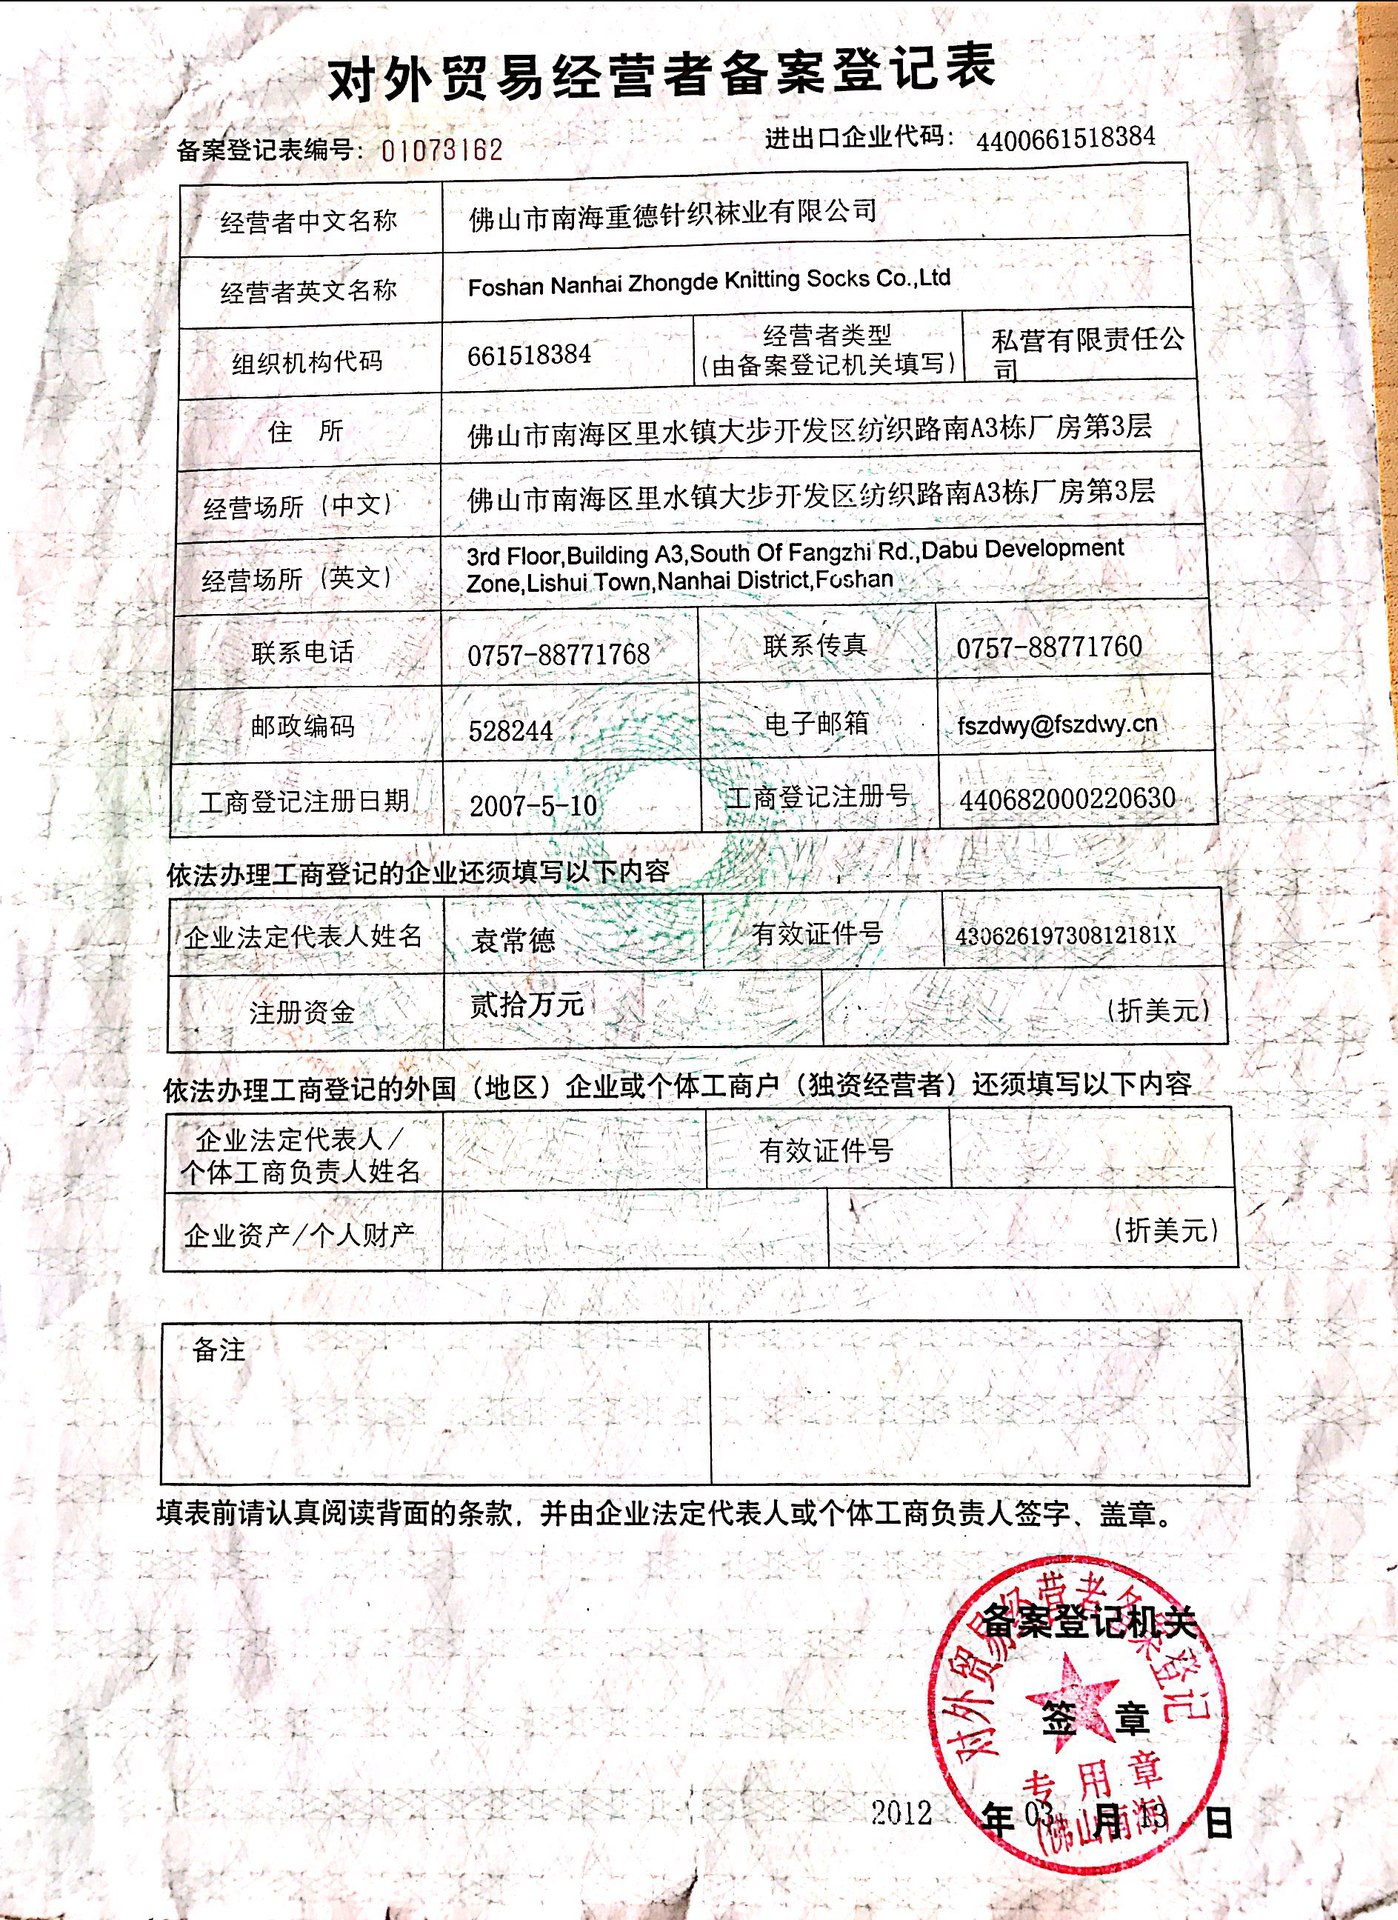 对外贸易经营者备案登记表
备案登记表编号：01073162
进出口企业代码：4400661518384
经营者中文名称
佛山市南海重德针织袜业有限公司
经营者英文名称
Foshan Nanhai Zhongde Knitting Socks Co.,Ltd
组织机构代码
661518384
经营者类型
(由备案登记机关填写)
私营有限责任公
司
住 所
佛山市南海区里水镇大步开发区纺织路南A3栋厂房第3层
经营场所（中文）
佛山市南海区里水镇大步开发区纺织路南A3栋厂房第3层
经营场所（英文）
3rd Floor,Building A3,South Of Fangzhi Rd.,Dabu Development
Zone,Lishui Town,Nanhai District,Foshan
联系电话
0757-88771768
联系传真
0757-88771760
邮政编码
528244
电子邮箱
fszdwy@fszdwy.cn
工商登记注册日期
2007-5-10
工商登记注册号
440682000220630
依法办理工商登记的企业还须填写以下内容
企业法定代表人姓名
袁常德
有效证件号
43062619730812181X
注册资金
贰拾万元
(折美元)
依法办理工商登记的外国（地区）企业或个体工商户（独资经营者）还须填写以下内容
企业法定代表人/
个体工商负责人姓名
有效证件号
企业资产/个人财产
(折美元)
备注
填表前请认真阅读背面的条款，并由企业法定代表人或个体工商负责人签字、盖章。
对外贸易经营者备案登记
备案登记机关
签 章
专用章
2012 年 03 月 13 日
(佛山南海)